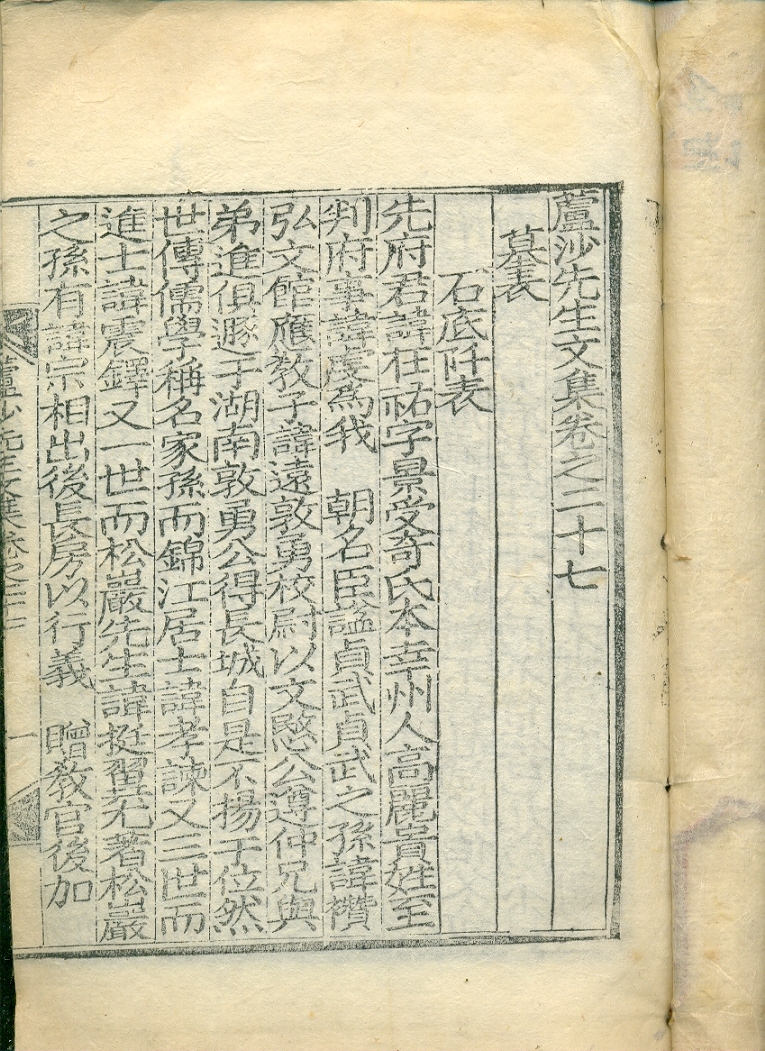 蘆沙先生文集卷之二十七
墓表
石底阡表
先府君諱在祐字景受奇氏本幸州人高麗貴姓至
判府事諱虔爲我 朝名臣謚貞武貞武之孫諱禶
弘文館應敎子諱遠敦勇校尉以文愍公遵仲兄與
弟進俱遯于湖南敦勇公得長城自是不揚于位然
世傳儒學稱名家孫而錦江居士諱孝諫又三世而
進士諱震鐸又一世而松巖先生諱挺翼尤著松巖
之孫有諱宗相出後長房以行義 贈敎官後加
蘆沙先生文集卷之二 一